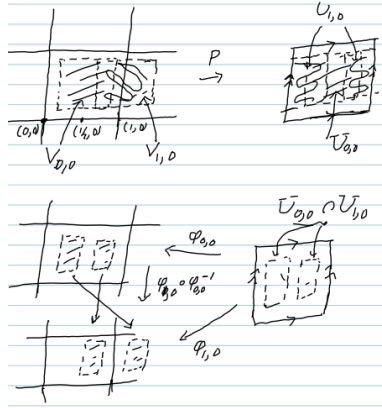 U₁,₀
P
(0,0) (½,0) (1,0)
V₀,₀ V₁,₀
U₀,₀
U₀,₀ ∩ U₁,₀
φ₀,₀
φ₁,₀